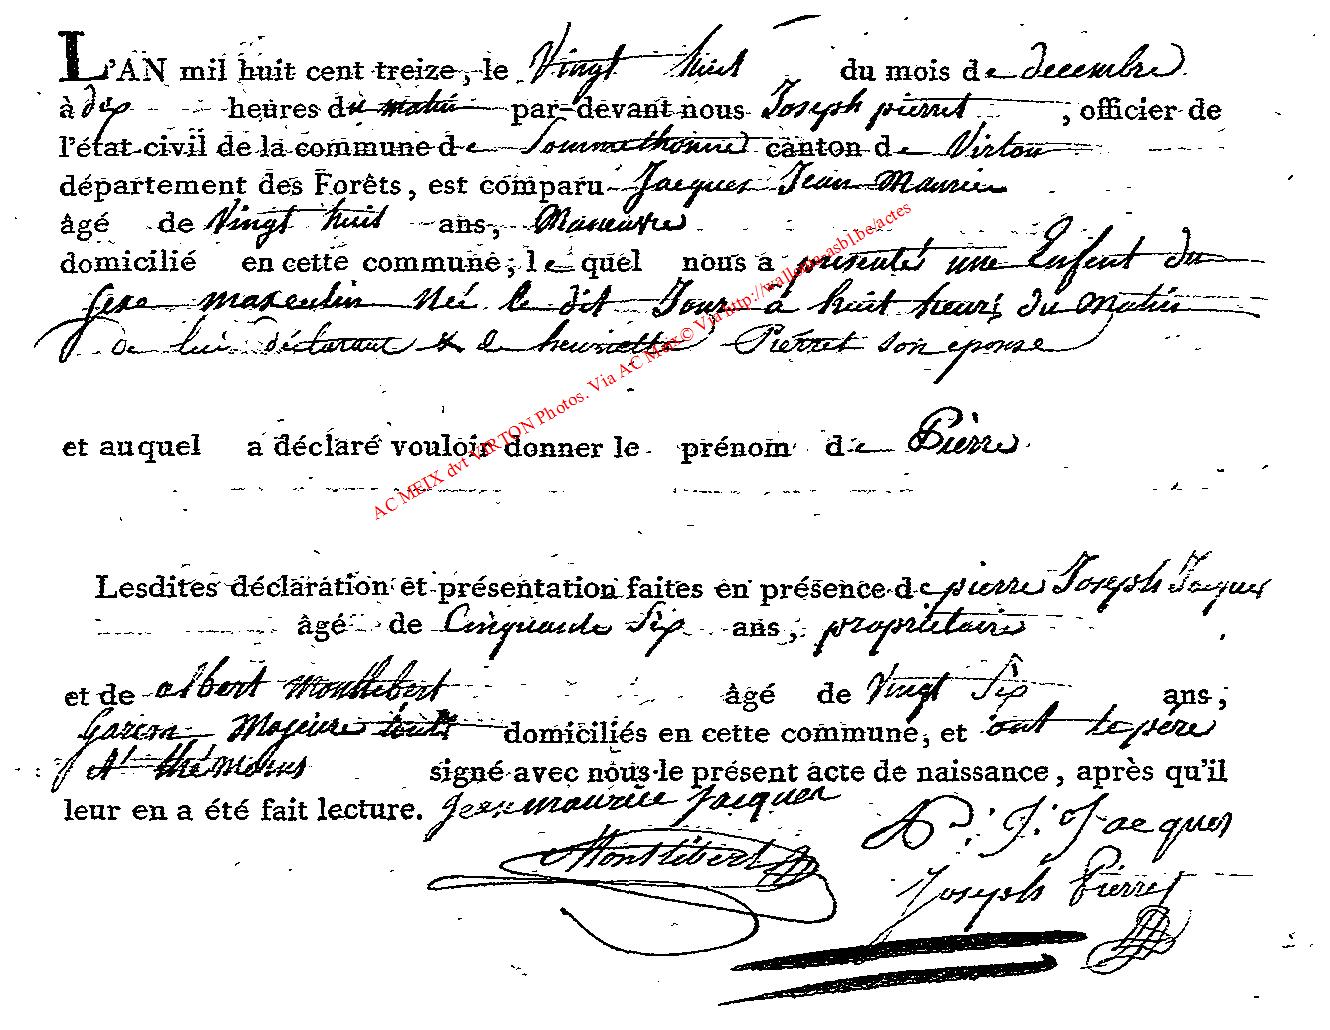 L'AN mil huit cent treize, le Vingt huit du mois de decembre
à dix heures du matin par-devant nous Joseph pierret, officier de
l'état-civil de la commune de Sommethonne canton de Virton
département des Forêts, est comparu Jacques Jean Maurice
âgé de Vingt huit ans, Maneuvre
domicilié en cette commune, lequel nous a presenté une Enfent du
sexe masculin Né le dit Jour à huit heurs du Matin
de lui déclarant & de henriette Pierret son epouse
et auquel a déclaré vouloir donner le prénom de Pierre
Lesdites déclaration et présentation faites en présence de pierre Joseph Jacques
âgé de Cinquante Six ans, propriétaire
et de albert Montlibert âgé de Vingt Six ans,
Garcon Majeure touts domiciliés en cette commune, et ont le père
et thémoins signé avec nous le présent acte de naissance, après qu'il
leur en a été fait lecture. Jean maurice Jacques
P. J. Jacques
Montlibert
Joseph Pierret
AC MEIX dvt VIRTON Photos. Via AC Meix© Via http://wallonia-asbl.be/actes